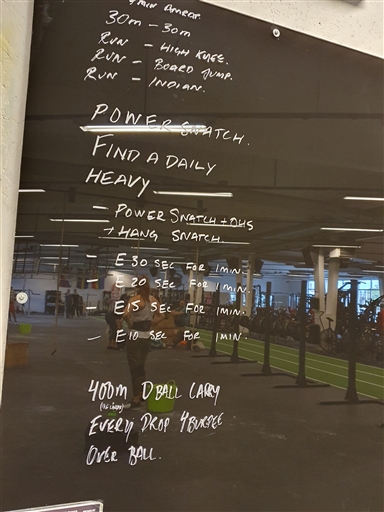 MIN AMRAP.
30m - 30m
RUN - HIGH KNEE.
RUN - BOARD JUMP.
RUN - INDIAN.
POWER SNATCH.
FIND A DAILY
HEAVY
- POWER SNATCH + OHS
→ HANG SNATCH.
- E 30 SEC FOR 1 MIN.
- E 20 SEC FOR 1 MIN.
- E15 SEC FOR 1MIN.
- E10 SEC FOR 1 MIN.
400m DBALL CARRY
EVERY DROP 4 BURPEE
OVER BALL.